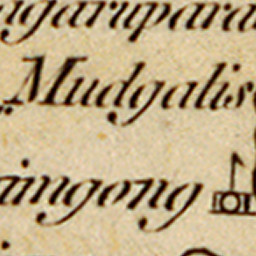 garupara
Mudgalis
aingong